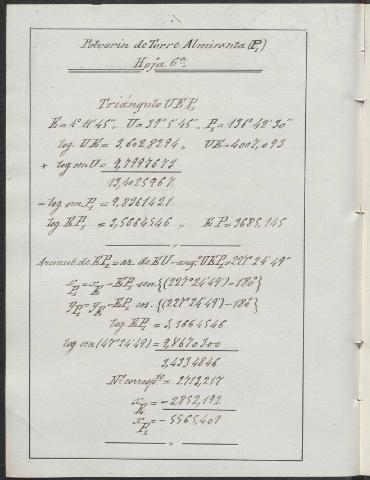 Polvorin de Torre Almiranta (P₁)
Hoja 6ª
Triángulo UEP₁
E=4°11'45", U=39°5'45", P₁=136°42'30"
log. UE = 3,6028294 „ UE=4007,093
+ log sen U = 9,7997673
13,4025967
- log sen P₁ = 9,8361421
log. EP₁ = 3,5664546 „ EP=3685,145
„
Azimut de EP₁= az. de EU - ang. UEP₁=227°24'49"
x P₁ = x E - EP₁ sen {(227°24'49")-180°}
y P₁ = y E - EP₁ cos. {(227°24'49")-180°}
log EP₁ = 3,5664546
log sen (47°24'49) = 9,8670300
3,4334846
Nº corresp.te = 2713,217
x E = -2852,192
x P₁ = -5565,409
„